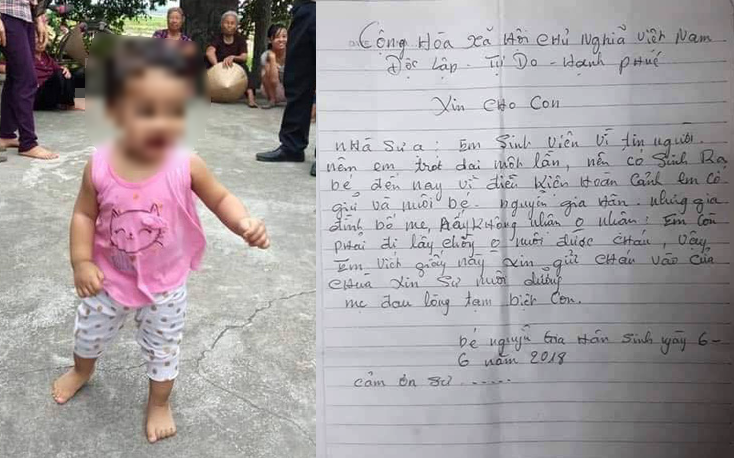 Cộng Hòa Xã Hội Chủ Nghĩa Việt Nam
Độc Lập - Tự Do - Hạnh Phúc
Xin Cho Con
Nhà Sư ạ: Em Sinh Viên Vì tin người.
nên em trót dại một lần, nên có Sinh Ra
bé, đến nay vì điều Kiện Hoàn Cảnh Em cố
giữ và nuôi bé. nguyễn gia Hân. nhưng gia
đình bố mẹ, Đấy Không nhận o nhận: Em Còn
phải đi lấy chồng o nuôi được Cháu, Vậy
Em Viết giấy này Xin gửi Cháu vào Cửa
Chùa Xin Sư nuôi dưỡng
mẹ đau lòng tạm biệt Con.
bé nguyễn Gia Hân Sinh ngày 6-
6 năm 2018
cảm ơn Sư ......